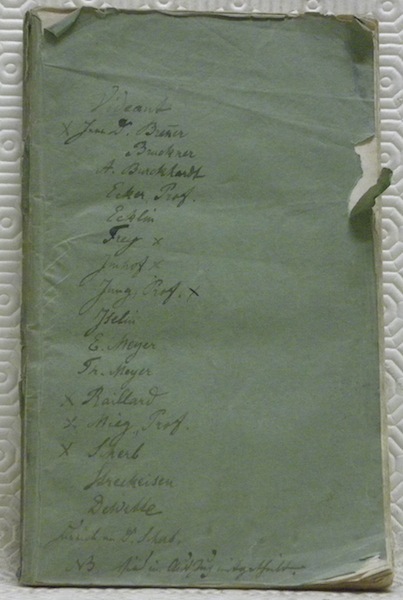 Videant
x Jun. D. Brenner
Bruckner
A. Burckhardt
Ecker, Prof.
Ecklin
Frey x
Imhof x
Jung, Prof. x
Iselin
E. Meyer
Fr. Meyer
x Raillard
x. Mieg, Prof.
x Scherb
Streckeisen
DeWette
D. Scherb.
NB